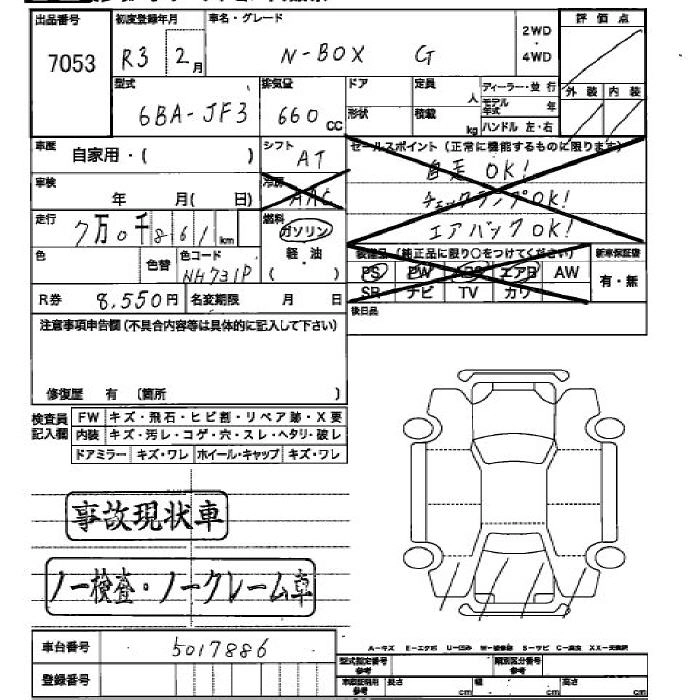 出品番号 初度登録年月 車名・グレード 2WD・4WD 評価点
7053 R3 2月 N-BOX G
型式 排気量 ドア 定員 人 ディーラー・並行 外装 内装
6BA-JF3 660cc 形状 積載 kg モデル年式 年
ハンドル 左・右
車歴 自家用・( ) シフト AT セールスポイント(正常に機能するものに限ります)
自走 OK!
車検 年 月( 日) 冷房 AAC チェックランプOK!
エアバックOK!
走行 7万0千861km 燃料 ガソリン
軽・油
( )
装備品(純正品に限り○をつけてください) 新車保証書
色 色替 色コード NH731P PS PW ABS エアB AW 有・無
R券 8,550円 名変期限 月 日 SR ナビ TV カワ
後日品
注意事項申告欄(不具合内容等は具体的に記入して下さい)
修復歴 有 〔箇所 〕
検査員記入欄 FW キズ・飛石・ヒビ割・リペア跡・X要
内装 キズ・汚レ・コゲ・穴・スレ・ヘタリ・破レ
ドアミラー キズ・ワレ ホイール・キャップ キズ・ワレ
事故現状車
ノー検査・ノークレーム車
車台番号 5017886
A-キズ E-エクボ U-凹み W-補修跡 S-サビ C-腐食 XX-交換済
登録番号 型式指定番号 参考 類別区分番号 参考
車庫証明用 参考 長さ cm 幅 cm 高さ cm